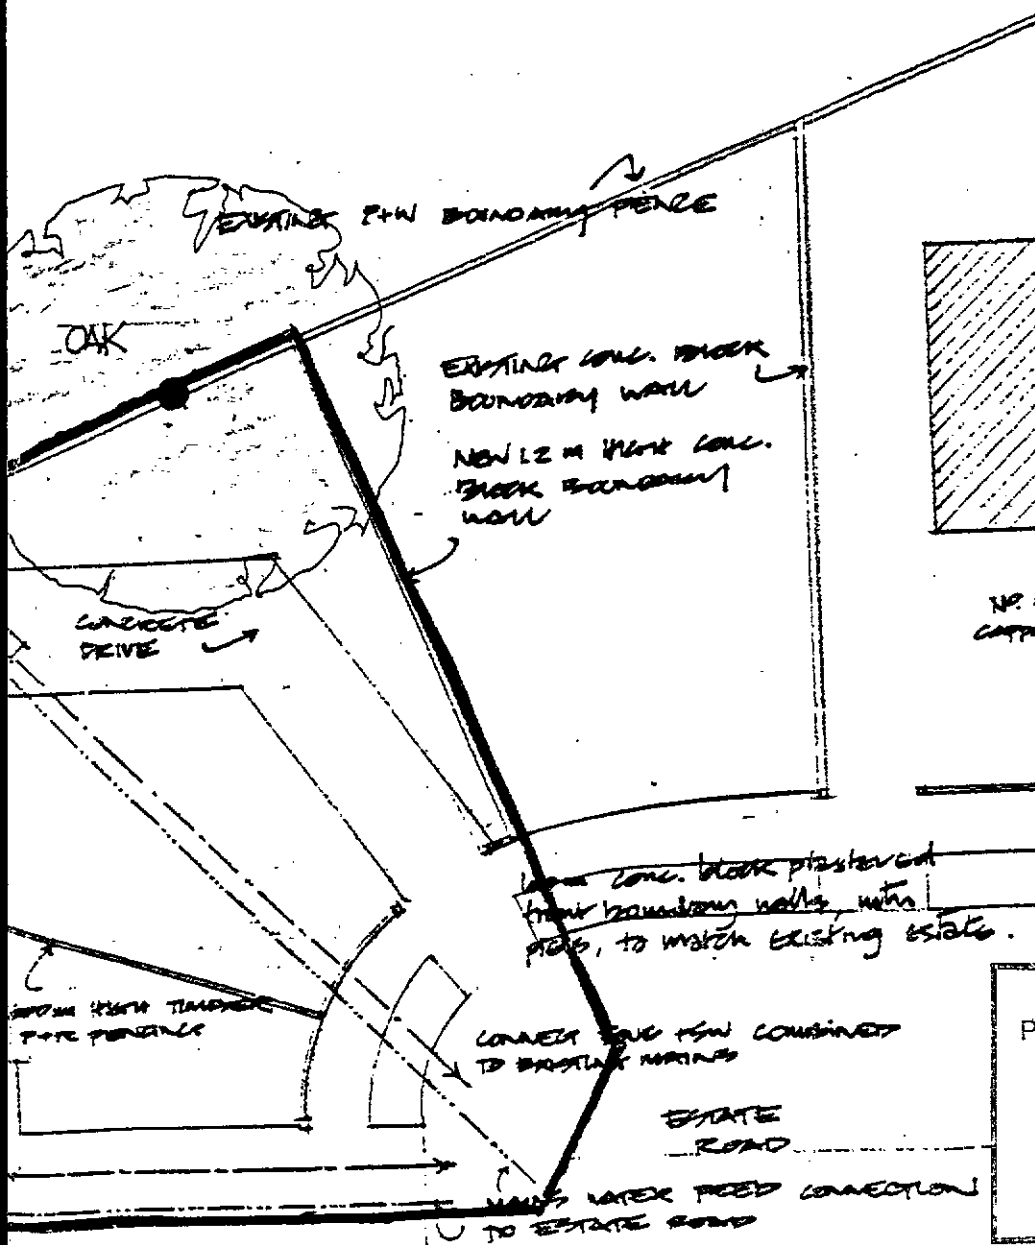 EXISTING P+W BOUNDARY FENCE
OAK
EXISTING CONC. BLOCK
BOUNDARY WALL
NEW 1.2 M HIGH CONC.
BLOCK BOUNDARY
WALL
CONCRETE
DRIVE
NO.
conc. block plastered
front boundary walls, with
piers, to match existing estate.
HIGH TIMBER
FENCING
CONNECT COMBINED
TO EXISTING MAINS
ESTATE
ROAD
MAINS WATER FEED CONNECTION
TO ESTATE ROAD
P